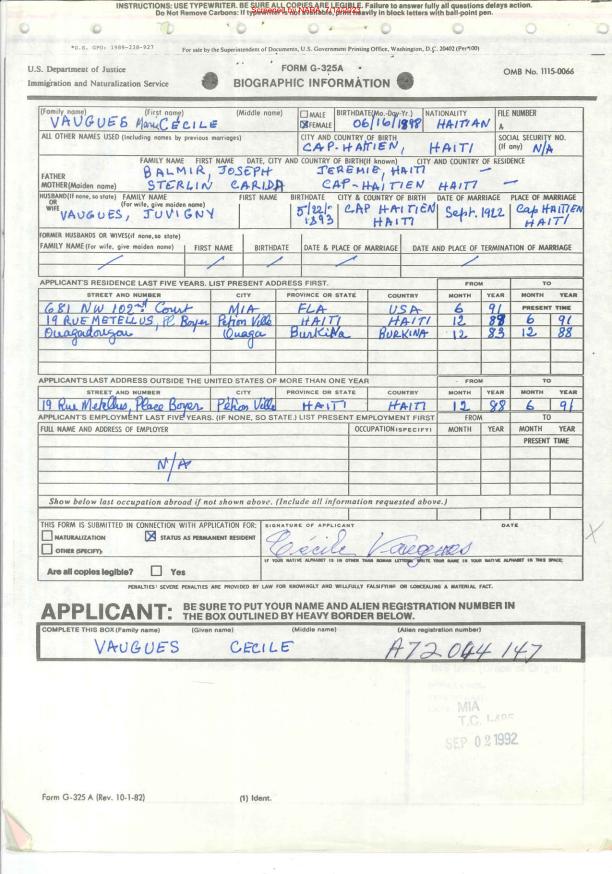 INSTRUCTIONS: USE TYPEWRITER. BE SURE ALL COPIES ARE LEGIBLE. Failure to answer fully all questions delays action.
Do Not Remove Carbons: If typewriter is not available, print heavily in block letters with ball-point pen.
Screened by NARA,
For sale by the Superintendent of Documents, U.S. Government Printing Office, Washington, D.C. 20402
U.S. Department of Justice
Immigration and Naturalization Service
FORM G-325A
BIOGRAPHIC INFORMATION
OMB No. 1115-0066
(Family name) (First name) (Middle name) MALE FEMALE BIRTHDATE(Mo.-Day-Yr.) NATIONALITY FILE NUMBER
VAUGUES Marie CECILE 06/16/1898 HAITIAN A
ALL OTHER NAMES USED (Including names by previous marriages) CITY AND COUNTRY OF BIRTH SOCIAL SECURITY NO. (If any)
CAP-HATIEN, HAITI N/A
FAMILY NAME FIRST NAME DATE, CITY AND COUNTRY OF BIRTH(If known) CITY AND COUNTRY OF RESIDENCE
FATHER BALMIR, JOSEPH JEREMIE, HAITI —
MOTHER(Maiden name) STERLIN CARIDA CAP-HAITIEN HAITI —
HUSBAND(If none, so state) OR WIFE FAMILY NAME (For wife, give maiden name) FIRST NAME BIRTHDATE CITY & COUNTRY OF BIRTH DATE OF MARRIAGE PLACE OF MARRIAGE
VAUGUES, JUVIGNY 5/22/ 1893 CAP HAITIEN HAITI Sept. 1922 Cap HAITIEN HAITI
FORMER HUSBANDS OR WIVES(if none, so state)
FAMILY NAME (For wife, give maiden name) FIRST NAME BIRTHDATE DATE & PLACE OF MARRIAGE DATE AND PLACE OF TERMINATION OF MARRIAGE
APPLICANT'S RESIDENCE LAST FIVE YEARS. LIST PRESENT ADDRESS FIRST. FROM TO
STREET AND NUMBER CITY PROVINCE OR STATE COUNTRY MONTH YEAR MONTH YEAR
681 NW 102nd Court MIA FLA USA 6 91 PRESENT TIME
19 RUE METELLUS, Pl. Boyer Pétion Ville HAITI HAITI 12 88 6 91
Ouagadougou Ouaga BURKINA BURKINA 12 83 12 88
APPLICANT'S LAST ADDRESS OUTSIDE THE UNITED STATES OF MORE THAN ONE YEAR FROM TO
STREET AND NUMBER CITY PROVINCE OR STATE COUNTRY MONTH YEAR MONTH YEAR
19 Rue Metellus, Place Boyer Pétion Ville HAITI HAITI 12 88 6 91
APPLICANT'S EMPLOYMENT LAST FIVE YEARS. (IF NONE, SO STATE.) LIST PRESENT EMPLOYMENT FIRST FROM TO
FULL NAME AND ADDRESS OF EMPLOYER OCCUPATION(SPECIFY) MONTH YEAR MONTH YEAR
PRESENT TIME
N/A
Show below last occupation abroad if not shown above. (Include all information requested above.)
THIS FORM IS SUBMITTED IN CONNECTION WITH APPLICATION FOR: SIGNATURE OF APPLICANT DATE
NATURALIZATION STATUS AS PERMANENT RESIDENT
OTHER (SPECIFY):
Cécile Vaugues
IF YOUR NATIVE ALPHABET IS IN OTHER THAN ROMAN LETTERS, WRITE YOUR NAME IN YOUR NATIVE ALPHABET IN THIS SPACE:
Are all copies legible? Yes
PENALTIES: SEVERE PENALTIES ARE PROVIDED BY LAW FOR KNOWINGLY AND WILLFULLY FALSIFYING OR CONCEALING A MATERIAL FACT.
APPLICANT: BE SURE TO PUT YOUR NAME AND ALIEN REGISTRATION NUMBER IN
THE BOX OUTLINED BY HEAVY BORDER BELOW.
COMPLETE THIS BOX (Family name) (Given name) (Middle name) (Alien registration number)
VAUGUES CECILE A72 044 147
MIA
SEP 02 1992
Form G-325 A (Rev. 10-1-82) (1) Ident.